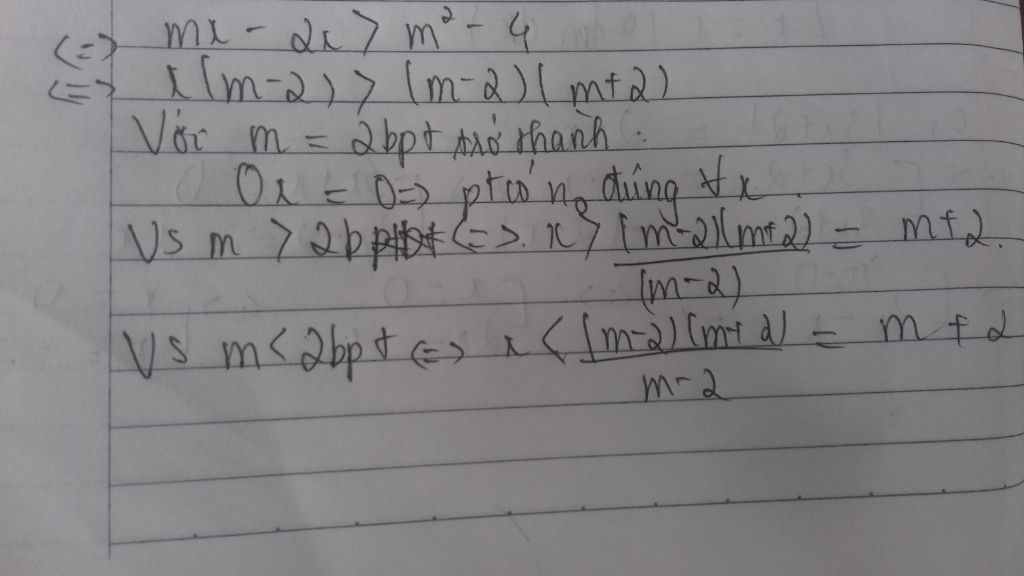 <=> mx - 2x > m² - 4
<=> x(m-2) > (m-2)(m+2)
Với m = 2 bpt trở thành :
0x = 0 => pt có n₀ đúng ∀x.
Vs m > 2 b <=> x > (m-2)(m+2)/(m-2) = m+2.
Vs m < 2 bpt <=> x < (m-2)(m+2)/m-2 = m + 2